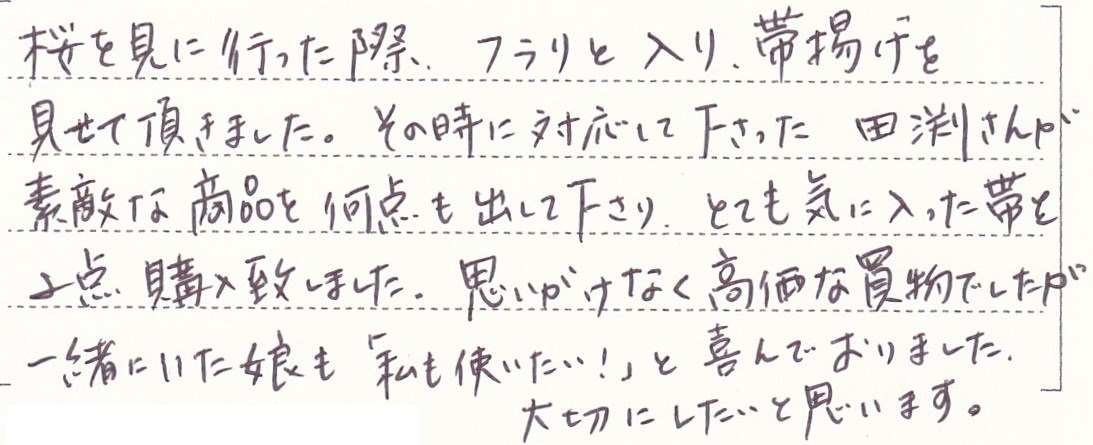 桜を見に行った際、フラリと入り、帯揚げを
見せて頂きました。その時に対応して下さった 田渕さんが
素敵な商品を何点も出して下さり、とても気に入った帯を
2点購入致しました。思いがけなく高価な買物でしたが
一緒にいた娘も「私も使いたい!」と喜んでおりました。
大切にしたいと思います。